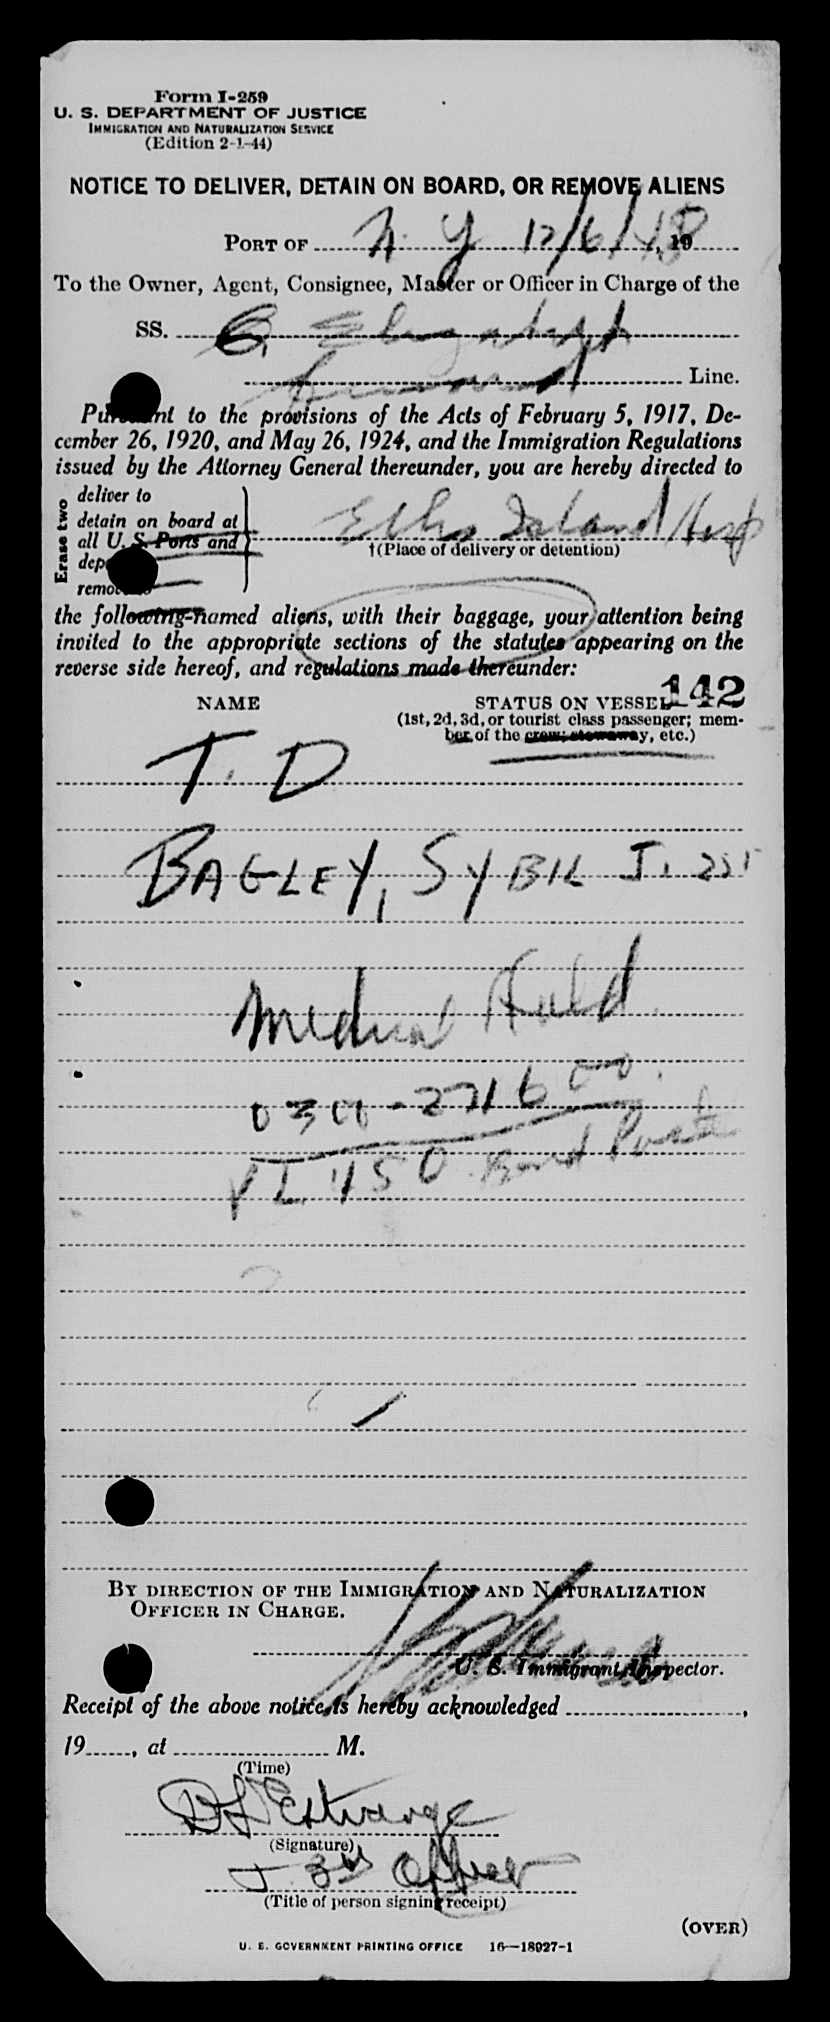 Form I-259
U. S. DEPARTMENT OF JUSTICE
IMMIGRATION AND NATURALIZATION SERVICE
(Edition 2-1-44)
NOTICE TO DELIVER, DETAIN ON BOARD, OR REMOVE ALIENS
PORT OF N. Y 12/6/48, 19
To the Owner, Agent, Consignee, Master or Officer in Charge of the
SS. Q Elizabeth
Cunard Line.
Pursuant to the provisions of the Acts of February 5, 1917, De-
cember 26, 1920, and May 26, 1924, and the Immigration Regulations
issued by the Attorney General thereunder, you are hereby directed to
Erase two
deliver to
detain on board at
all U. S. Ports and
dep
remove
Ellis Island Hosp
†(Place of delivery or detention)
the following-named aliens, with their baggage, your attention being
invited to the appropriate sections of the statutes appearing on the
reverse side hereof, and regulations made thereunder:
142
NAME STATUS ON VESSEL
(1st, 2d, 3d, or tourist class passenger; mem-
ber of the crew; stowaway, etc.)
T. D
BAGLEY, SYBIL J.
Medical Hold
0300-271600
450
BY DIRECTION OF THE IMMIGRATION AND NATURALIZATION
OFFICER IN CHARGE.
U. S. Immigrant Inspector.
Receipt of the above notice is hereby acknowledged ,
19 , at M.
(Time)
B L'Estrange
(Signature)
J 3rd Officer
(Title of person signing receipt)
(OVER)
U. S. GOVERNMENT PRINTING OFFICE 16—18927-1